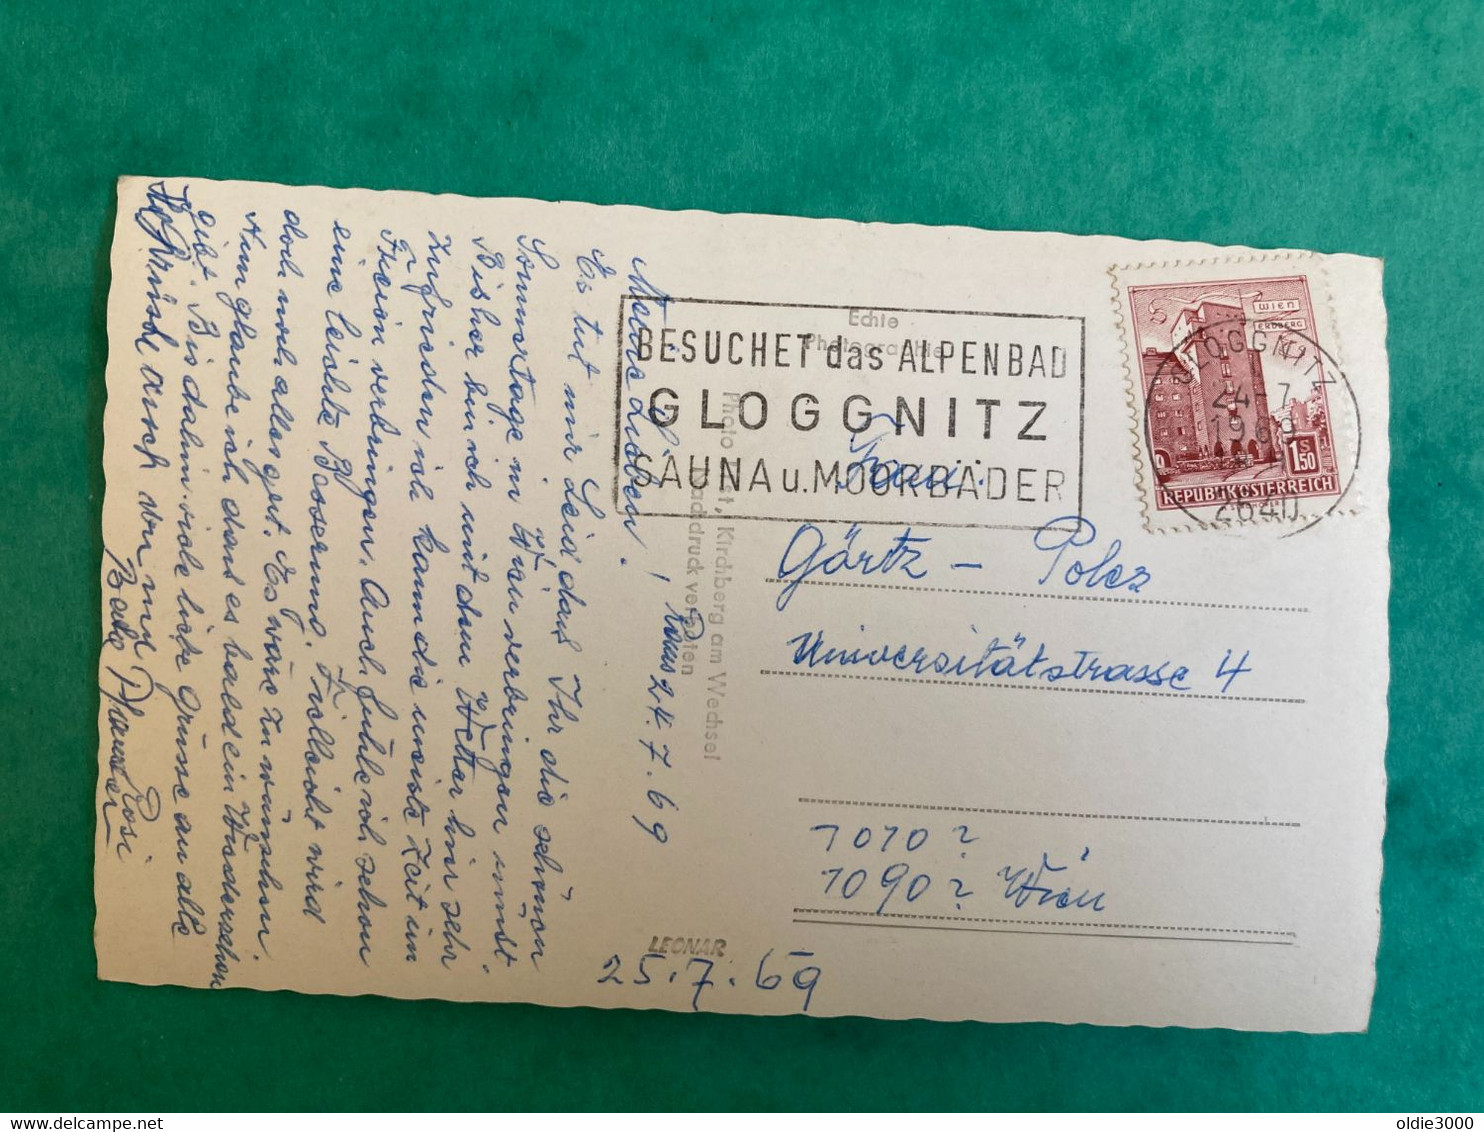 Meine Lieben!
Es tut mir Leid das Ihr die schönen
Sommertage in Wien verbringen müßt.
Bisher bin ich mit dem Wetter hier sehr
zufrieden ich kann die meiste Zeit im
Freien verbringen. Auch fühle ich schon
eine leichte Besserung. Vielleicht wird
doch noch alles gut. Es wäre zu wünschen.
Nun glaube ich dass es bald ein Wiedersehen
gibt. Bis dahin viele liebe Grüsse an alle
Grüsse auch von my
Rosi
24.7.69
Echte
Photographie
Kirchberg am Wechsel
BESUCHET das ALPENBAD
GLOGGNITZ
SAUNA u. MOORBÄDER
WIEN
ERDBERG
1.50
REPUBLIK ÖSTERREICH
GLOGGNITZ
24-7
1969
2640
Fam.
Görtz – Polez
Universitätstrasse 4
1010?
1090? Wien
LEONAR
25.7.69
oldie3000